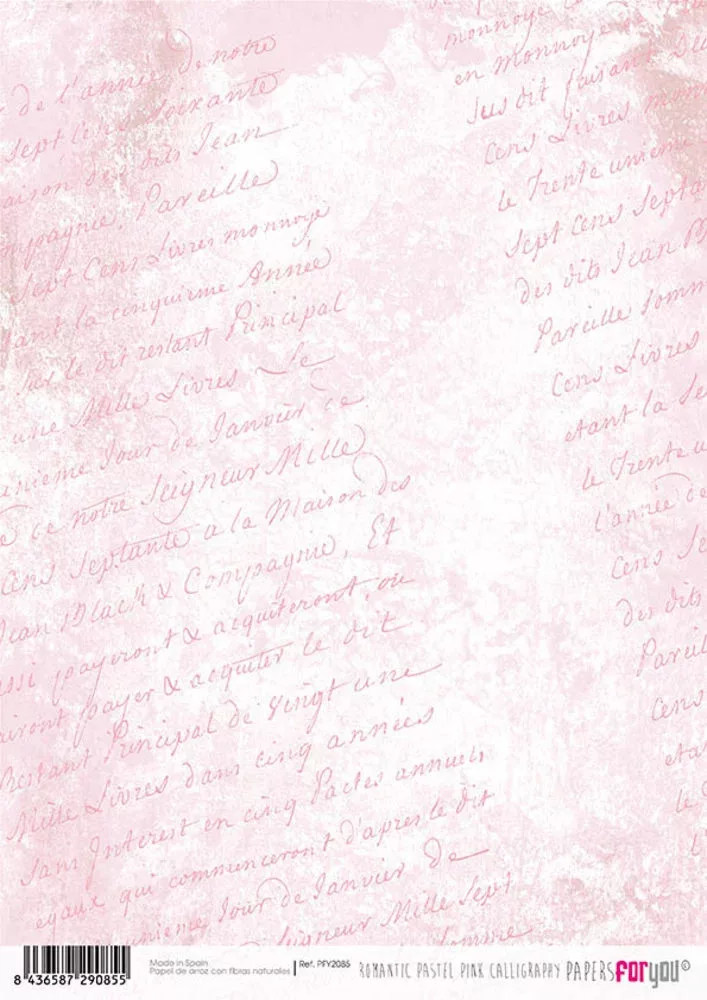 de l'année de notre
Sept Cens Soixante
aison des dits Jean
mpagnie, Pareille
Sept Cens Livres monnoye
ant la cinquieme Année
le dit restant Principal
une Mille Livres Le
unieme Jour de Janvier de
ce notre Seigneur Mille
Cens Septante a la Maison des
Jean Black & Compagnie, Et
ussi payeront & acquiteront, ou
airont payer & acquiter le dit
Restant Principal de Vingt une
Mille Livres dans cinq années
Sans Interest en cinq Pactes annuels
egaux qui commenceront d'apres le dit
unieme Jour de Janvier De
Seigneur Mille Sept
Somme
monnoye
en monnoye
Sus dit faisant
Cens Livres monn
le Trente unieme
Sept Cens Septa
des dits Jean B
Pareille Somm
Cens Livres
etant la Se
le Trente u
l'année de
Cens Se
des dits
Pareil
Cens
eta
le
l'
8 436587 290855
Made in Spain
Papel de arroz con fibras naturales
Ref. PFY2085
ROMANTIC PASTEL PINK CALLIGRAPHY
PAPERSFORyou©